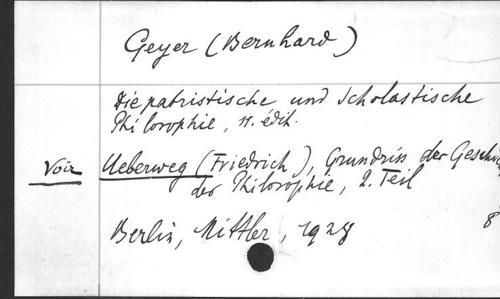 Geyer (Bernhard)
Die patristische und scholastische
Philosophie, 11. édit.
Voir Ueberweg (Friedrich), Grundriss der Geschi
der Philosophie, 2. Teil
Berlin, Mittler, 1928
8